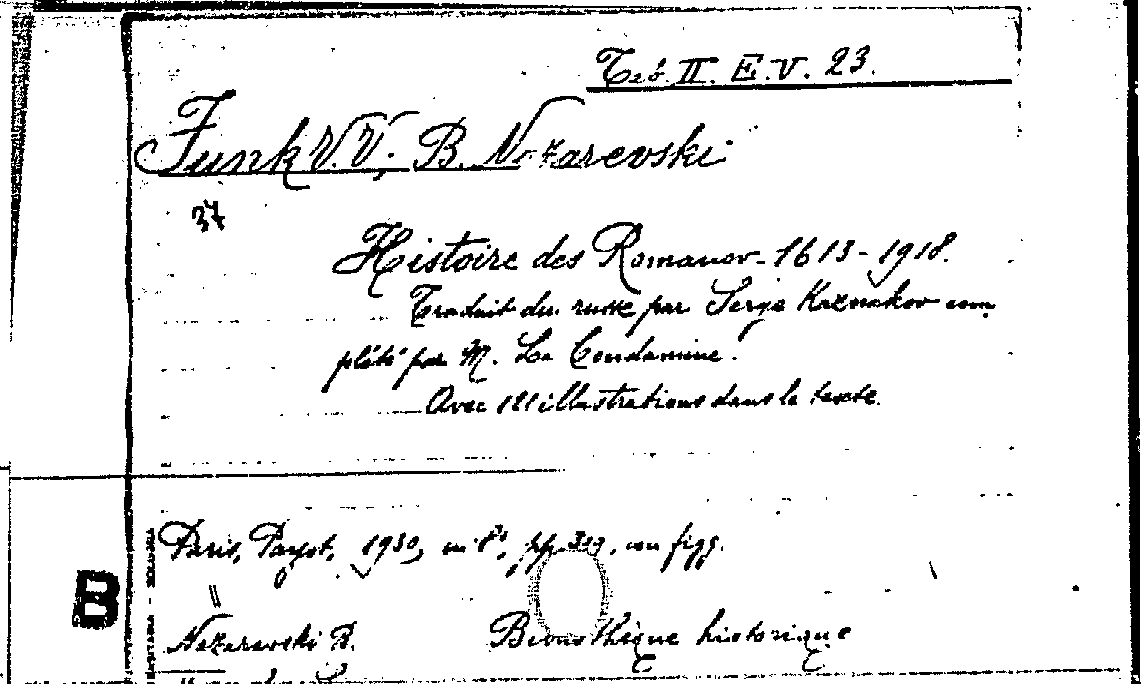 Teb. II. E. V. 23.
Funk V. V., B. Nazarevski
37
Histoire des Romanov - 1613 - 1918.
Traduit du russe par Serge Kaznakov com
plété par M. La Condamine.
Avec illustrations dans le texte.
Paris, Payot, 1930, in 8°, pp. 319, con figg.
"
Nazarevski B. Bibliothèque historique
B